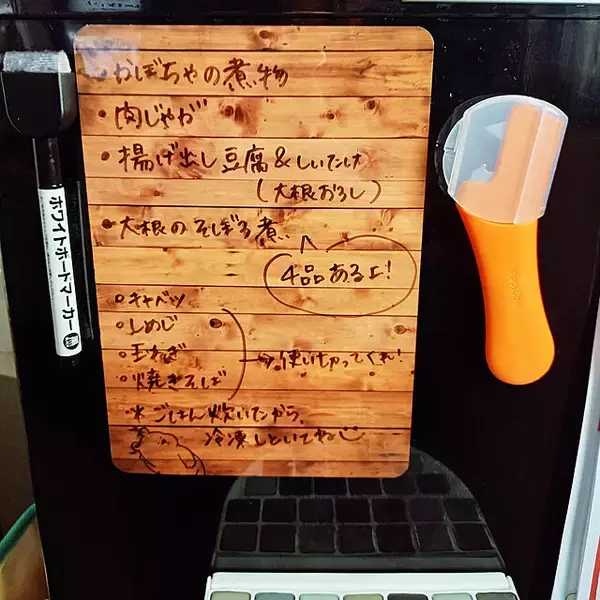 ・かぼちゃの煮物
・肉じゃが
・揚げ出し豆腐&しいたけ
(大根おろし)
・大根のそぼろ煮
4品あるよ!
・キャベツ
・しめじ
・玉ねぎ
・焼きそば
→使い切ってくれ!
※ごはん炊いたから、
冷凍しといてね
ホワイトボードマーカー